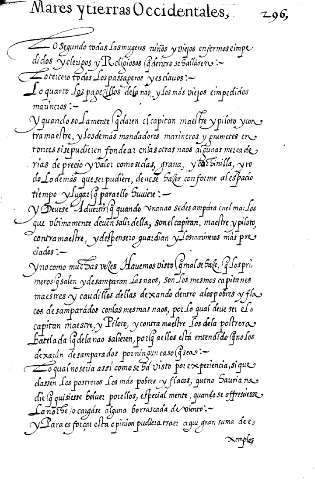 Mares y tierras Occidentales, 296,
Lo Segundo todas las mugeres niños y viejos enfermos e impe
didos y clerigos y Religiosos q̃ dentro se hallaren:~
Lo tercero todos los passageros y esclauos:~
Lo quarto los pagecillos dela nao y los más viejos impedidos
marineros:~
Y quando solamente quedaren el capitan maestre y piloto y con
tramaestre, y los demás mandadores marineros y grumetes en
tonces si se pudieren fondear en las otras naos algunas mercade
rias de precio y valor como sedas, grana, y y to
do lo demás que se pudiere, deuese hazer conforme al espacio
tiempo y lugar q̃ para ello huuiere:~
Y Deuese Aduertir q̃ quando Vna nao se desampara enel mar los
que vltimamente deuen salir della, son el capitan, maestre y piloto,
contramaestre, y despensero guardian y los marineros más pre
ciados:~
Y no como muchas vezes Hauemos visto q̃ mal se haze, q̃ los pri
meros q̃ salen y desamparan las naos, son los mesmos capitanes
maestres y caudillos dellas dexando dentro alos pobres y fla
cos desamparádos con las mesmas naos, por lo qual deue ser el
capitan maestre, y Piloto, y contramaestre los dela postrera
batelada q̃ dela nao salieren, por q̃ a ellos está entendido q̃ no los
dexarán desamparados por ningun caso q̃ sea:~
Lo qual no seria assi como se há visto por experiencia, si que
dassen los postreros los más pobres y flacos, que no hauria na
die q̃ quisiesse boluer por ellos, especialmente, quando se offresciesse
La noche o cargáse alguna borrascada de viento:~
Y Para esforçar esta opinion pudiera traer aqui gran suma de e
xmplos